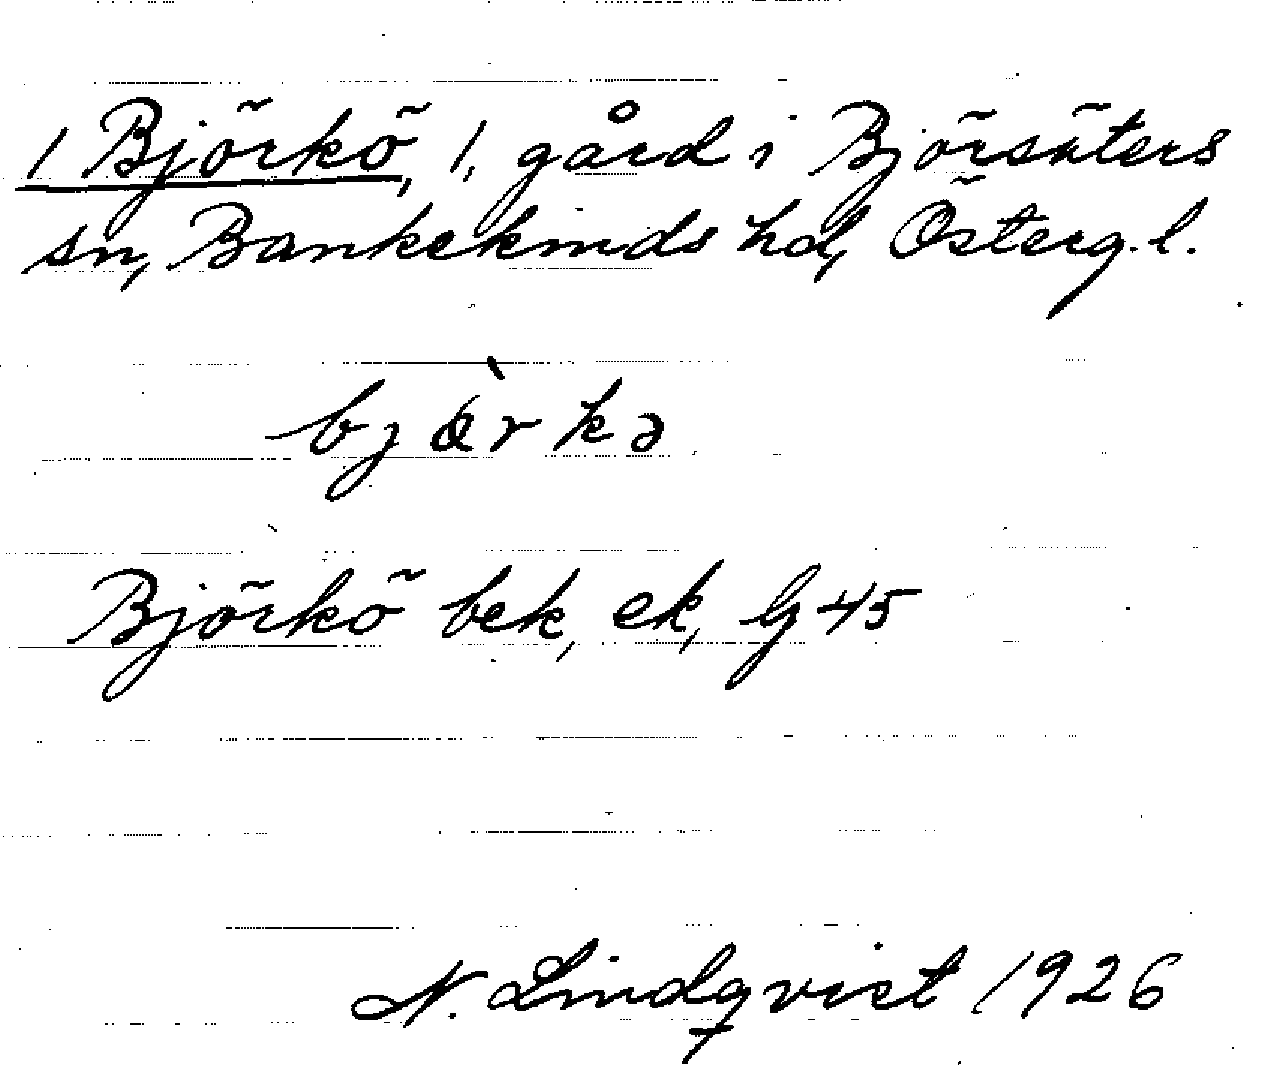 1 Björkö, 1, gård i Björsäters
sn, Bankekinds hd, Österg. l.
bjærkə
Björkö bek, ek, lg 45
N. Lindqvist 1926